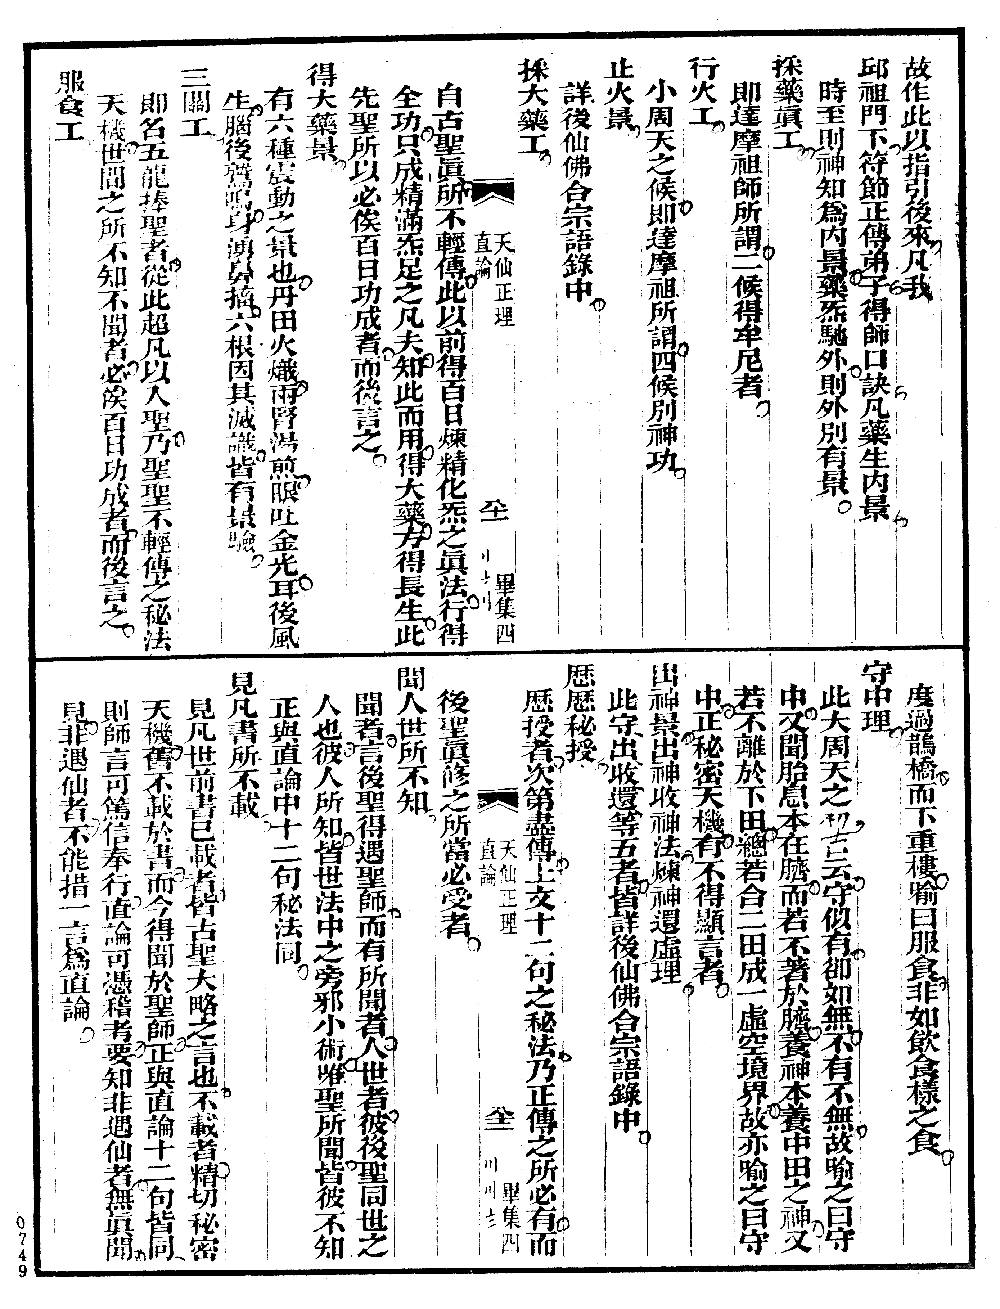 故作此以指引後來凡我
邱祖門下符節正傳弟子得師口訣凡藥生內景
時至則神知為內景藥炁馳外則外別有景
採藥真工
即達摩祖師所謂二候得牟尼者
行火工
小周天之候即達摩祖所謂四候別神功
止火景
詳後仙佛合宗語錄中
採大藥工
天仙正理
直論
卆一
畢集四
自古聖真所不輕傳此以前得百日煉精化炁之真法行得
全功只成精滿炁足之凡夫知此而用得大藥方得長生此
先聖所以必俟百日功成者而後言之
得大藥景
有六種震動之景也丹田火熾兩腎湯煎眼吐金光耳後風
生腦後鷲鳴身湧鼻搐六根因其滅識皆有景驗
三關工
即名五龍捧聖者從此超凡以入聖乃聖聖不輕傳之秘法
天機世間之所不知不聞者必俟百日功成者而後言之
服食工
度過鵲橋而下重樓喻曰服食非如飲食樣之食
守中理
此大周天之初古云守似有卻如無不有不無故喻之曰守
中又聞胎息本在臍而若不著於臍養神本養中田之神又
若不離於下田總若合二田成一虛空境界故亦喻之曰守
中正秘密天機有不得顯言者
出神景出神收神法煉神還虛理
此守出收還等五者皆詳後仙佛合宗語錄中
歷歷秘授
歷授者次第盡傳上文十二句之秘法乃正傳之所必有而
天仙正理
直論
卆二
畢集四
後聖真修之所當必受者
聞人世所不知
聞者言後聖得遇聖師而有所聞者人世者彼後聖同世之
人也彼人所知皆世法中之旁邪小術唯聖所聞皆彼不知
正與直論中十二句秘法同
見凡書所不載
見凡世前書已載者皆古聖大略之言也不載者精切秘密
天機舊不載於書而今得聞於聖師正與直論十二句皆同
則師言可篤信奉行直論可憑稽考要知非遇仙者無真聞
見非遇仙者不能措一言為直論
0749